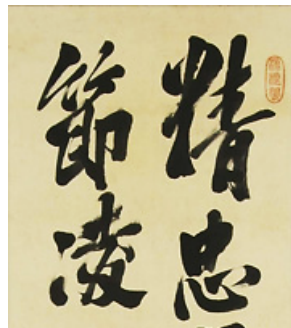 精忠
節凌